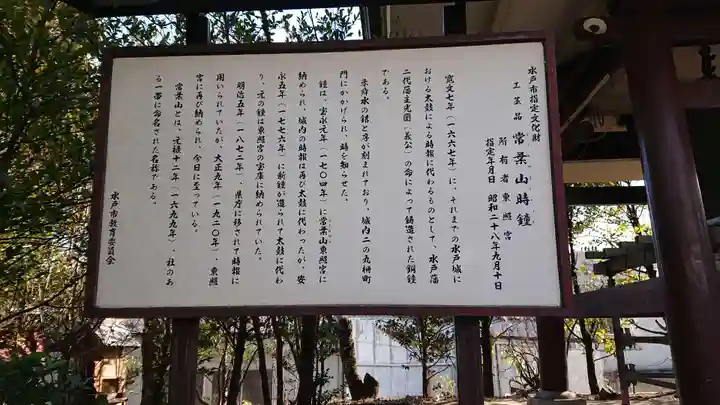 水戸市指定文化財
工芸品 常葉山時鐘
所有者 東照宮
指定年月日 昭和二十八年九月十日
寛文七年(一六六七年)に、それまでの水戸城に
おける太鼓による時報に代わるものとして、水戸藩
二代藩主光圀(義公)の命によって鋳造された銅鐘
である。
朱舜水の銘と序が刻まれており、城内二の丸柵町
門にかかげられ、時を知らせた。
鐘は、宝永元年(一七〇四年)に常葉山東照宮に
納められ、城内の時報は再び太鼓に代わったが、安
永五年(一七七六年)に新鐘が造られて太鼓に代わ
り、元の鐘は東照宮の宝庫に納められていた。
明治五年(一八七二年)、県庁に移されて時報に
用いられていたが、大正九年(一九二〇年)、東照
宮に再び納められ、今日に至っている。
常葉山とは、元禄十二年(一六九九年)、社のあ
る一帯に命名された名称である。
水戸市教育委員会